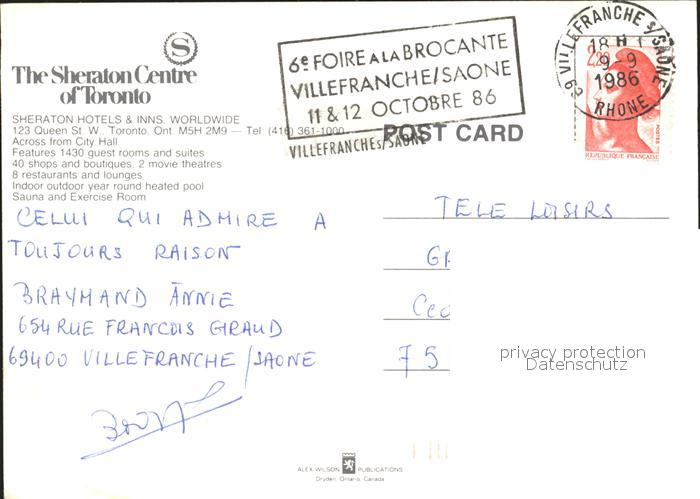 The Sheraton Centre
of Toronto
SHERATON HOTELS & INNS, WORLDWIDE
123 Queen St. W., Toronto, Ont. M5H 2M9 — Tel: (416) 361-1000
Across from City Hall
Features 1430 guest rooms and suites
40 shops and boutiques, 2 movie theatres
8 restaurants and lounges
Indoor outdoor year round heated pool
Sauna and Exercise Room
6e FOIRE A LA BROCANTE
VILLEFRANCHE/SAONE
11 & 12 OCTOBRE 86
VILLEFRANCHE s/SAONE
POST CARD
69 VILLEFRANCHE S/SAONE
18 H
9-9
1986
RHONE
2,20
REPUBLIQUE FRANÇAISE
CELUI QUI ADMIRE A
TOUJOURS RAISON
BRAYMAND ANNIE
654 RUE FRANCOIS GIRAUD
69400 VILLEFRANCHE/SAONE
TELE LOISIRS
75
privacy protection
Datenschutz
ALEX WILSON PUBLICATIONS
Dryden, Ontario, Canada